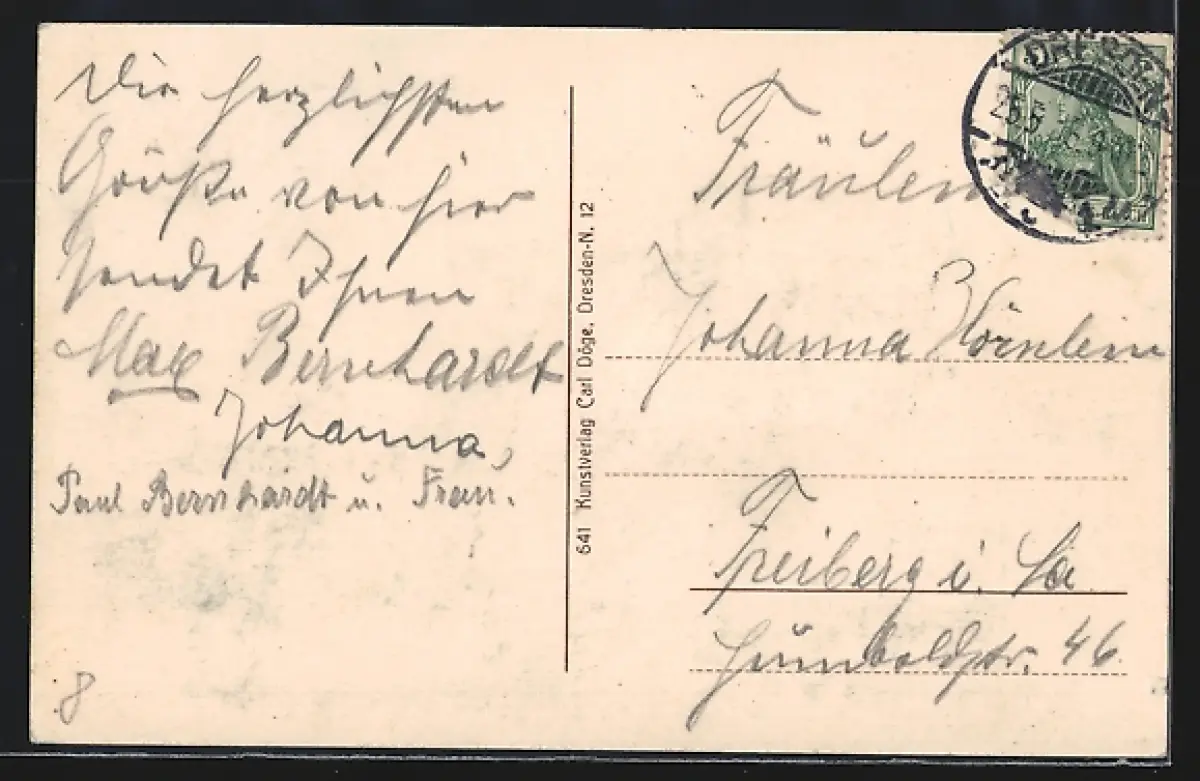 Die herzlichsten
Grüße von hier
sendet Ihnen
Max Bernhardt
Johanna,
Paul Bernhardt u. Frau.
8
641 Kunstverlag Carl Döge, Dresden-N. 12
DRESDEN
25.5
Fräulein
Johanna Hörnlein
Freiberg i. Sa
Humboldtstr. 46